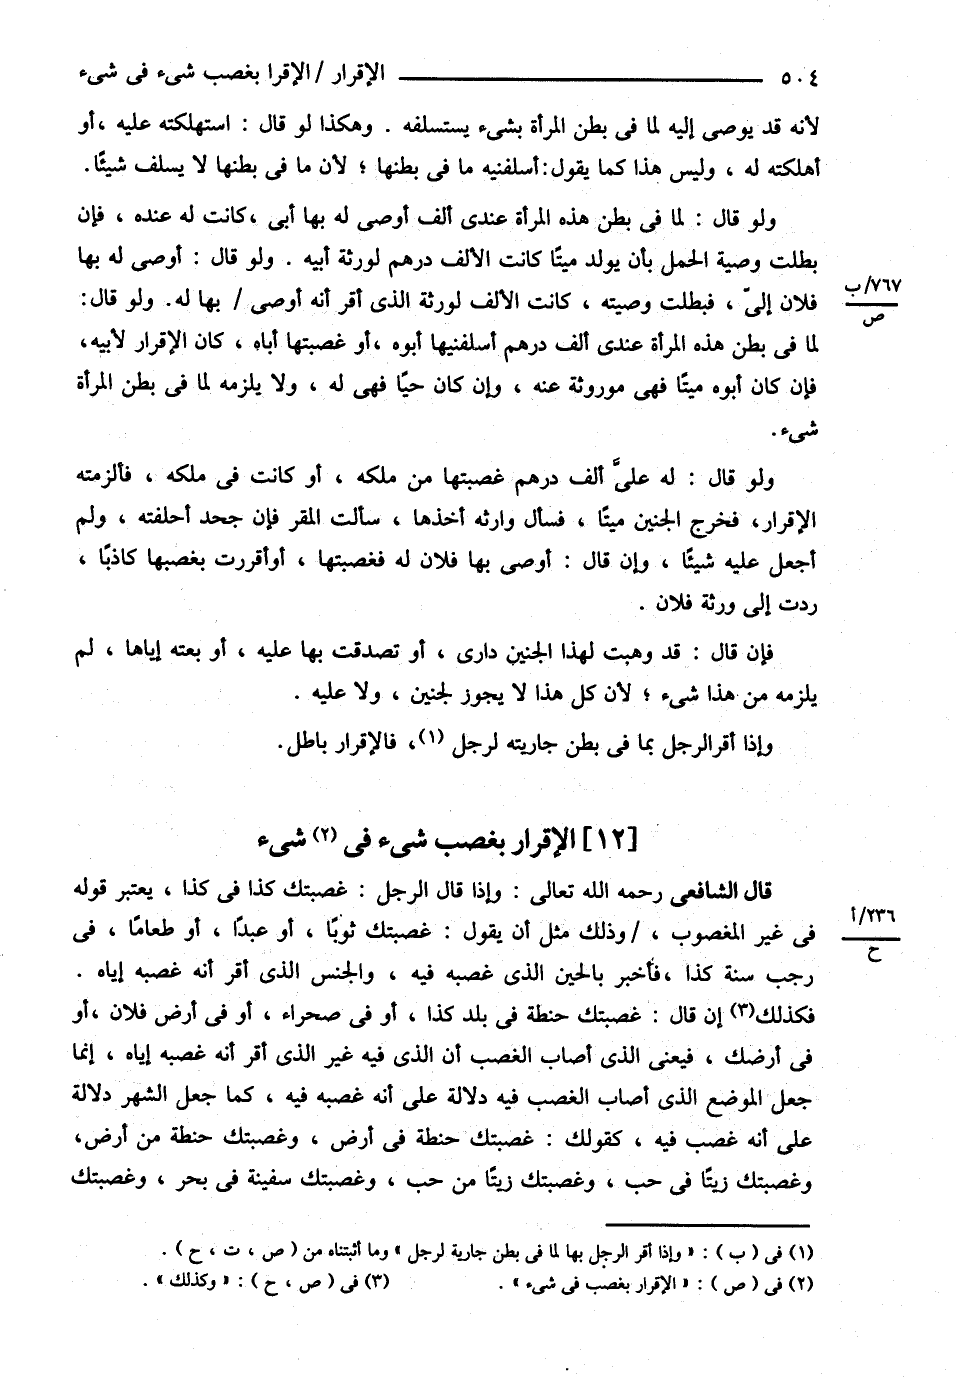 ٥٠٤ ــــــــــ الإقرار / الإقرا بغصب شىء فى شىء
لأنه قد يوصى إليه لما فى بطن المرأة بشىء يستسلفه . وهكذا لو قال : استهلكته عليه ،أو
أهلكته له ، وليس هذا كما يقول:أسلفنيه ما فى بطنها ؛ لأن ما فى بطنها لا يسلف شيئًا.
ولو قال : لما فى بطن هذه المرأة عندى ألف أوصى له بها أبى ،كانت له عنده ، فإن
بطلت وصية الحمل بأن يولد ميتًا كانت الألف درهم لورثة أبيه . ولو قال : أوصى له بها
فلان إلىّ ، فبطلت وصيته ، كانت الألف لورثة الذى أقر أنه أوصى / بها له. ولو قال:
٧٦٧/ب
ص
لما فى بطن هذه المرأة عندى ألف درهم أسلفنيها أبوه ،أو غصبتها أباه ، كان الإقرار لأبيه،
فإن كان أبوه ميتًا فهى موروثة عنه ، وإن كان حيًا فهى له ، ولا يلزمه لما فى بطن المرأة
شىء.
ولو قال : له علىَّ ألف درهم غصبتها من ملكه ، أو كانت فى ملكه ، فألزمته
الإقرار، فخرج الجنين ميتًا ، فسأل وارثه أخذها ، سألت المقر فإن جحد أحلفته ، ولم
أجعل عليه شيئًا ، وإن قال : أوصى بها فلان له فغصبتها ، أوأقررت بغصبها كاذبًا ،
ردت إلى ورثة فلان .
فإن قال : قد وهبت لهذا الجنين دارى ، أو تصدقت بها عليه ، أو بعته إياها ، لم
يلزمه من هذا شىء ؛ لأن كل هذا لا يجوز لجنين ، ولا عليه .
وإذا أقرالرجل بما فى بطن جاريته لرجل (١)، فالإقرار باطل.
[١٢] الإقرار بغصب شىء فى (٢) شىء
قال الشافعى رحمه الله تعالى : وإذا قال الرجل : غصبتك كذا فى كذا ، يعتبر قوله
فى غير المغصوب ، / وذلك مثل أن يقول : غصبتك ثوبًا ، أو عبدًا ، أو طعامًا ، فى
٢٣٦/أ
ح
رجب سنة كذا ،فأخبر بالحين الذى غصبه فيه ، والجنس الذى أقر أنه غصبه إياه .
فكذلك(٣) إن قال : غصبتك حنطة فى بلد كذا ، أو فى صحراء ، أو فى أرض فلان ،أو
فى أرضك ، فيعنى الذى أصاب الغصب أن الذى فيه غير الذى أقر أنه غصبه إياه ، إنما
جعل الموضع الذى أصاب الغصب فيه دلالة على أنه غصبه فيه ، كما جعل الشهر دلالة
على أنه غصب فيه ، كقولك : غصبتك حنطة فى أرض ، وغصبتك حنطة من أرض،
وغصبتك زيتًا فى حب ، وغصبتك زيتًا من حب ، وغصبتك سفينة فى بحر ، وغصبتك
(١) فى ( ب ) : « وإذا أقر الرجل بها لما فى بطن جارية لرجل » وما أثبتناه من ( ص ، ت ، ح ) .
(٢) فى ( ص ) : « الإقرار بغصب فى شىء » . (٣) فى ( ص ، ح ) : « وكذلك » .